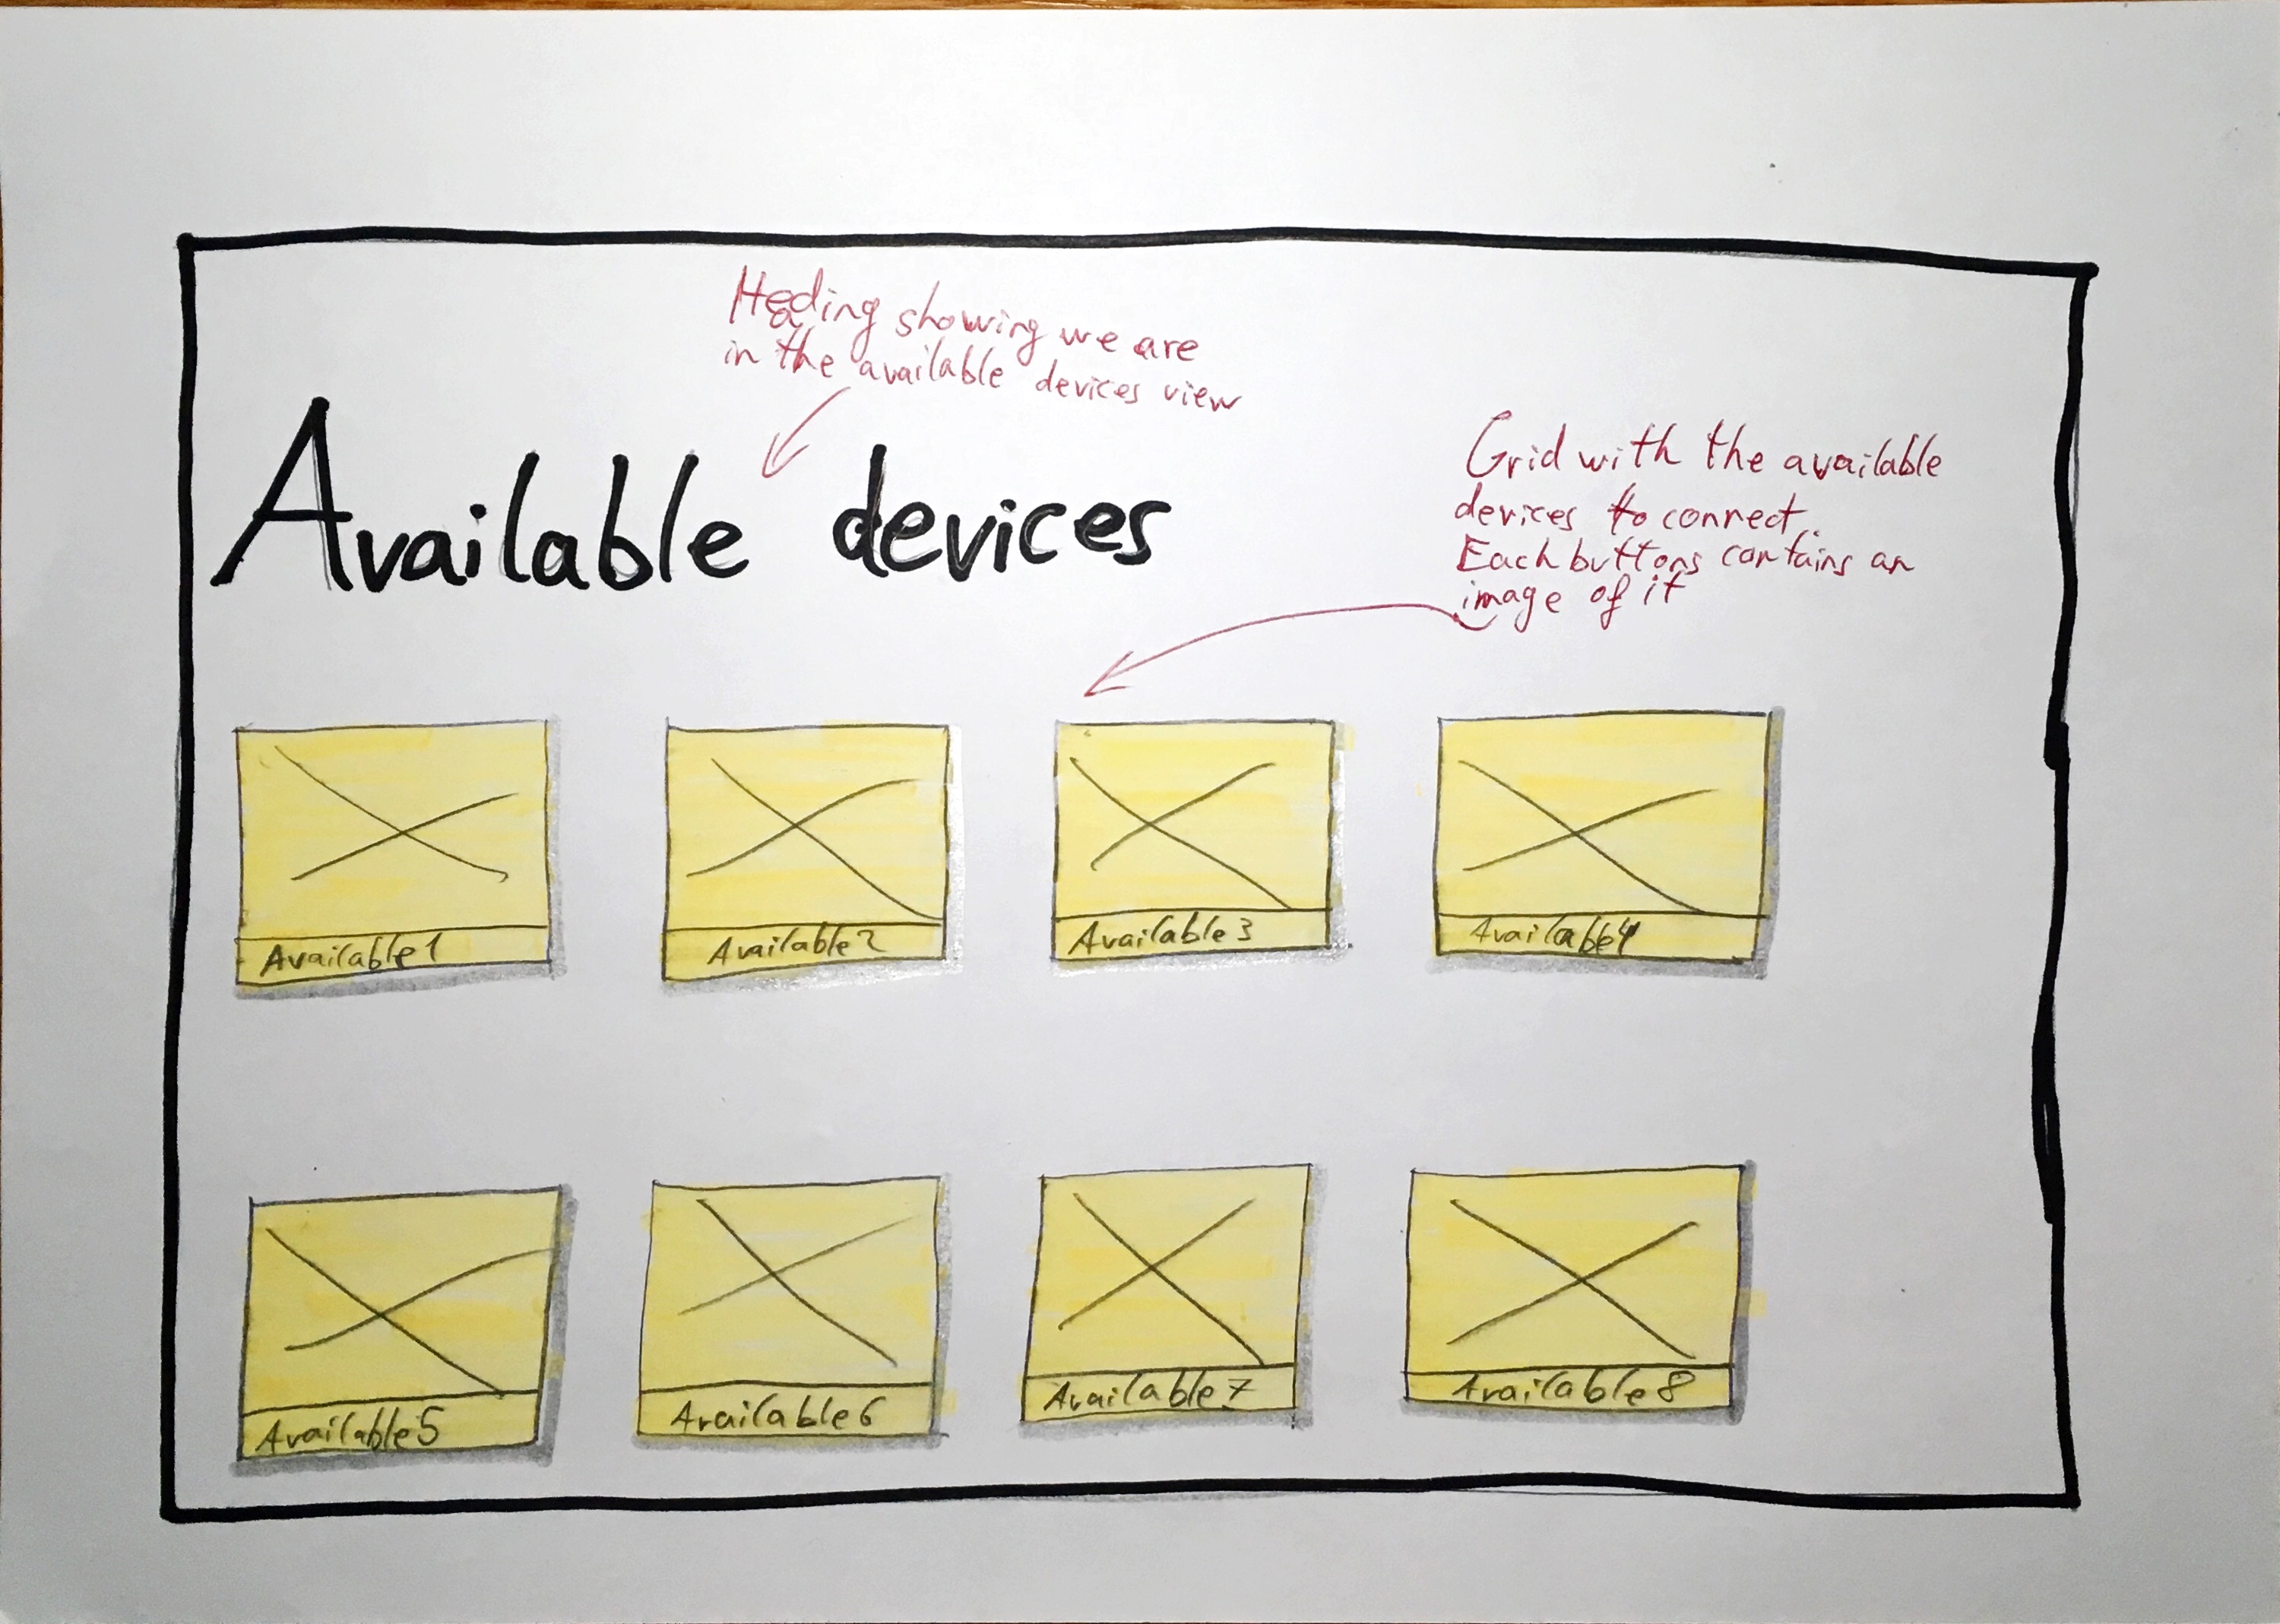 Heading showing we are
in the available devices view
Available devices
Grid with the available
devices to connect.
Each buttons contains an
image of it
Available1
Available2
Available3
Available4
Available5
Available6
Available7
Available8